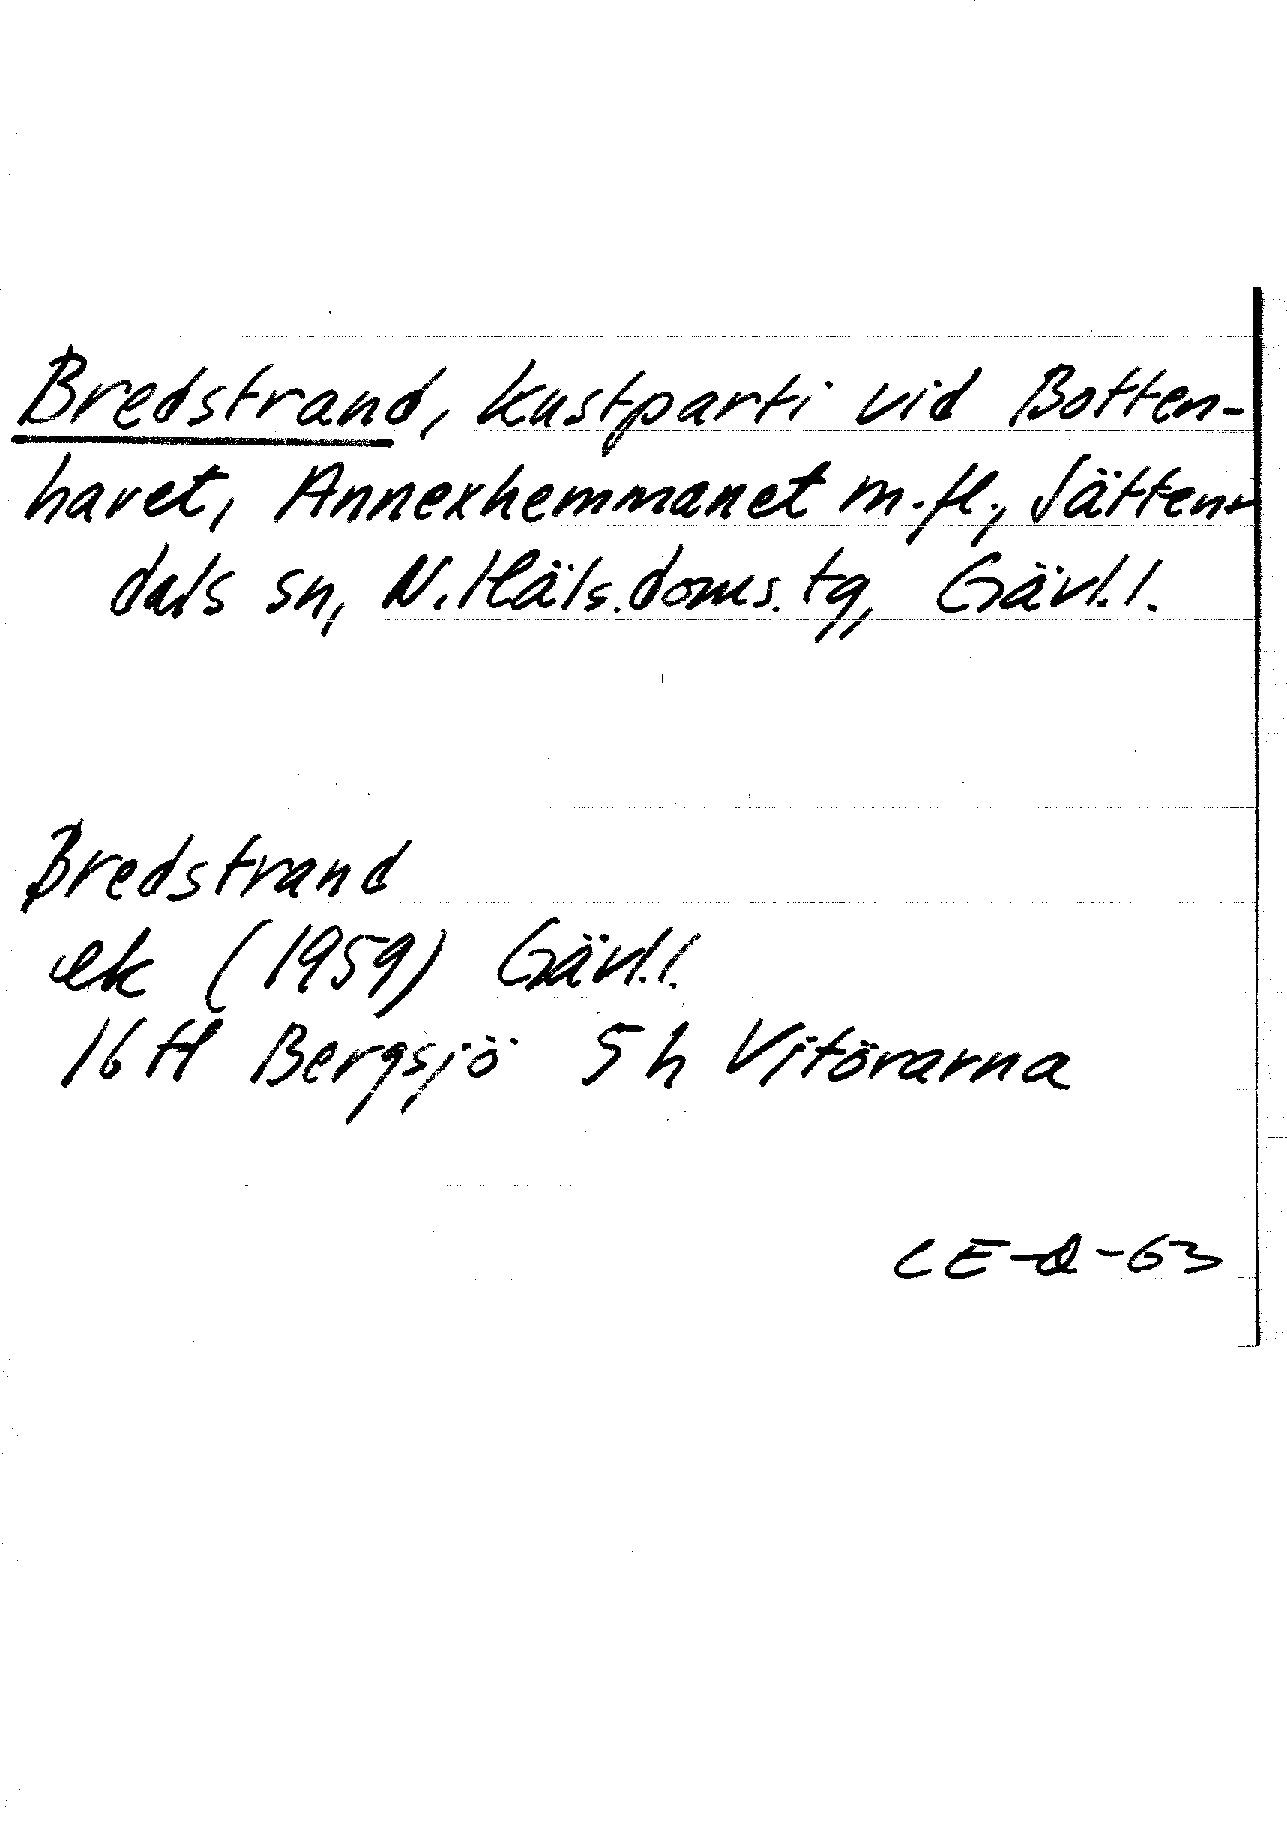 Bredstrand, kustparti vid Botten-
havet, Annexhemmanet m.fl., Jätten-
dals sn, N. Häls. doms. tg, Gävl.l.
Bredstrand
ek (1959) Gävl.l.
16H Bergsjö 5h Vitörarna
CE-Q-63